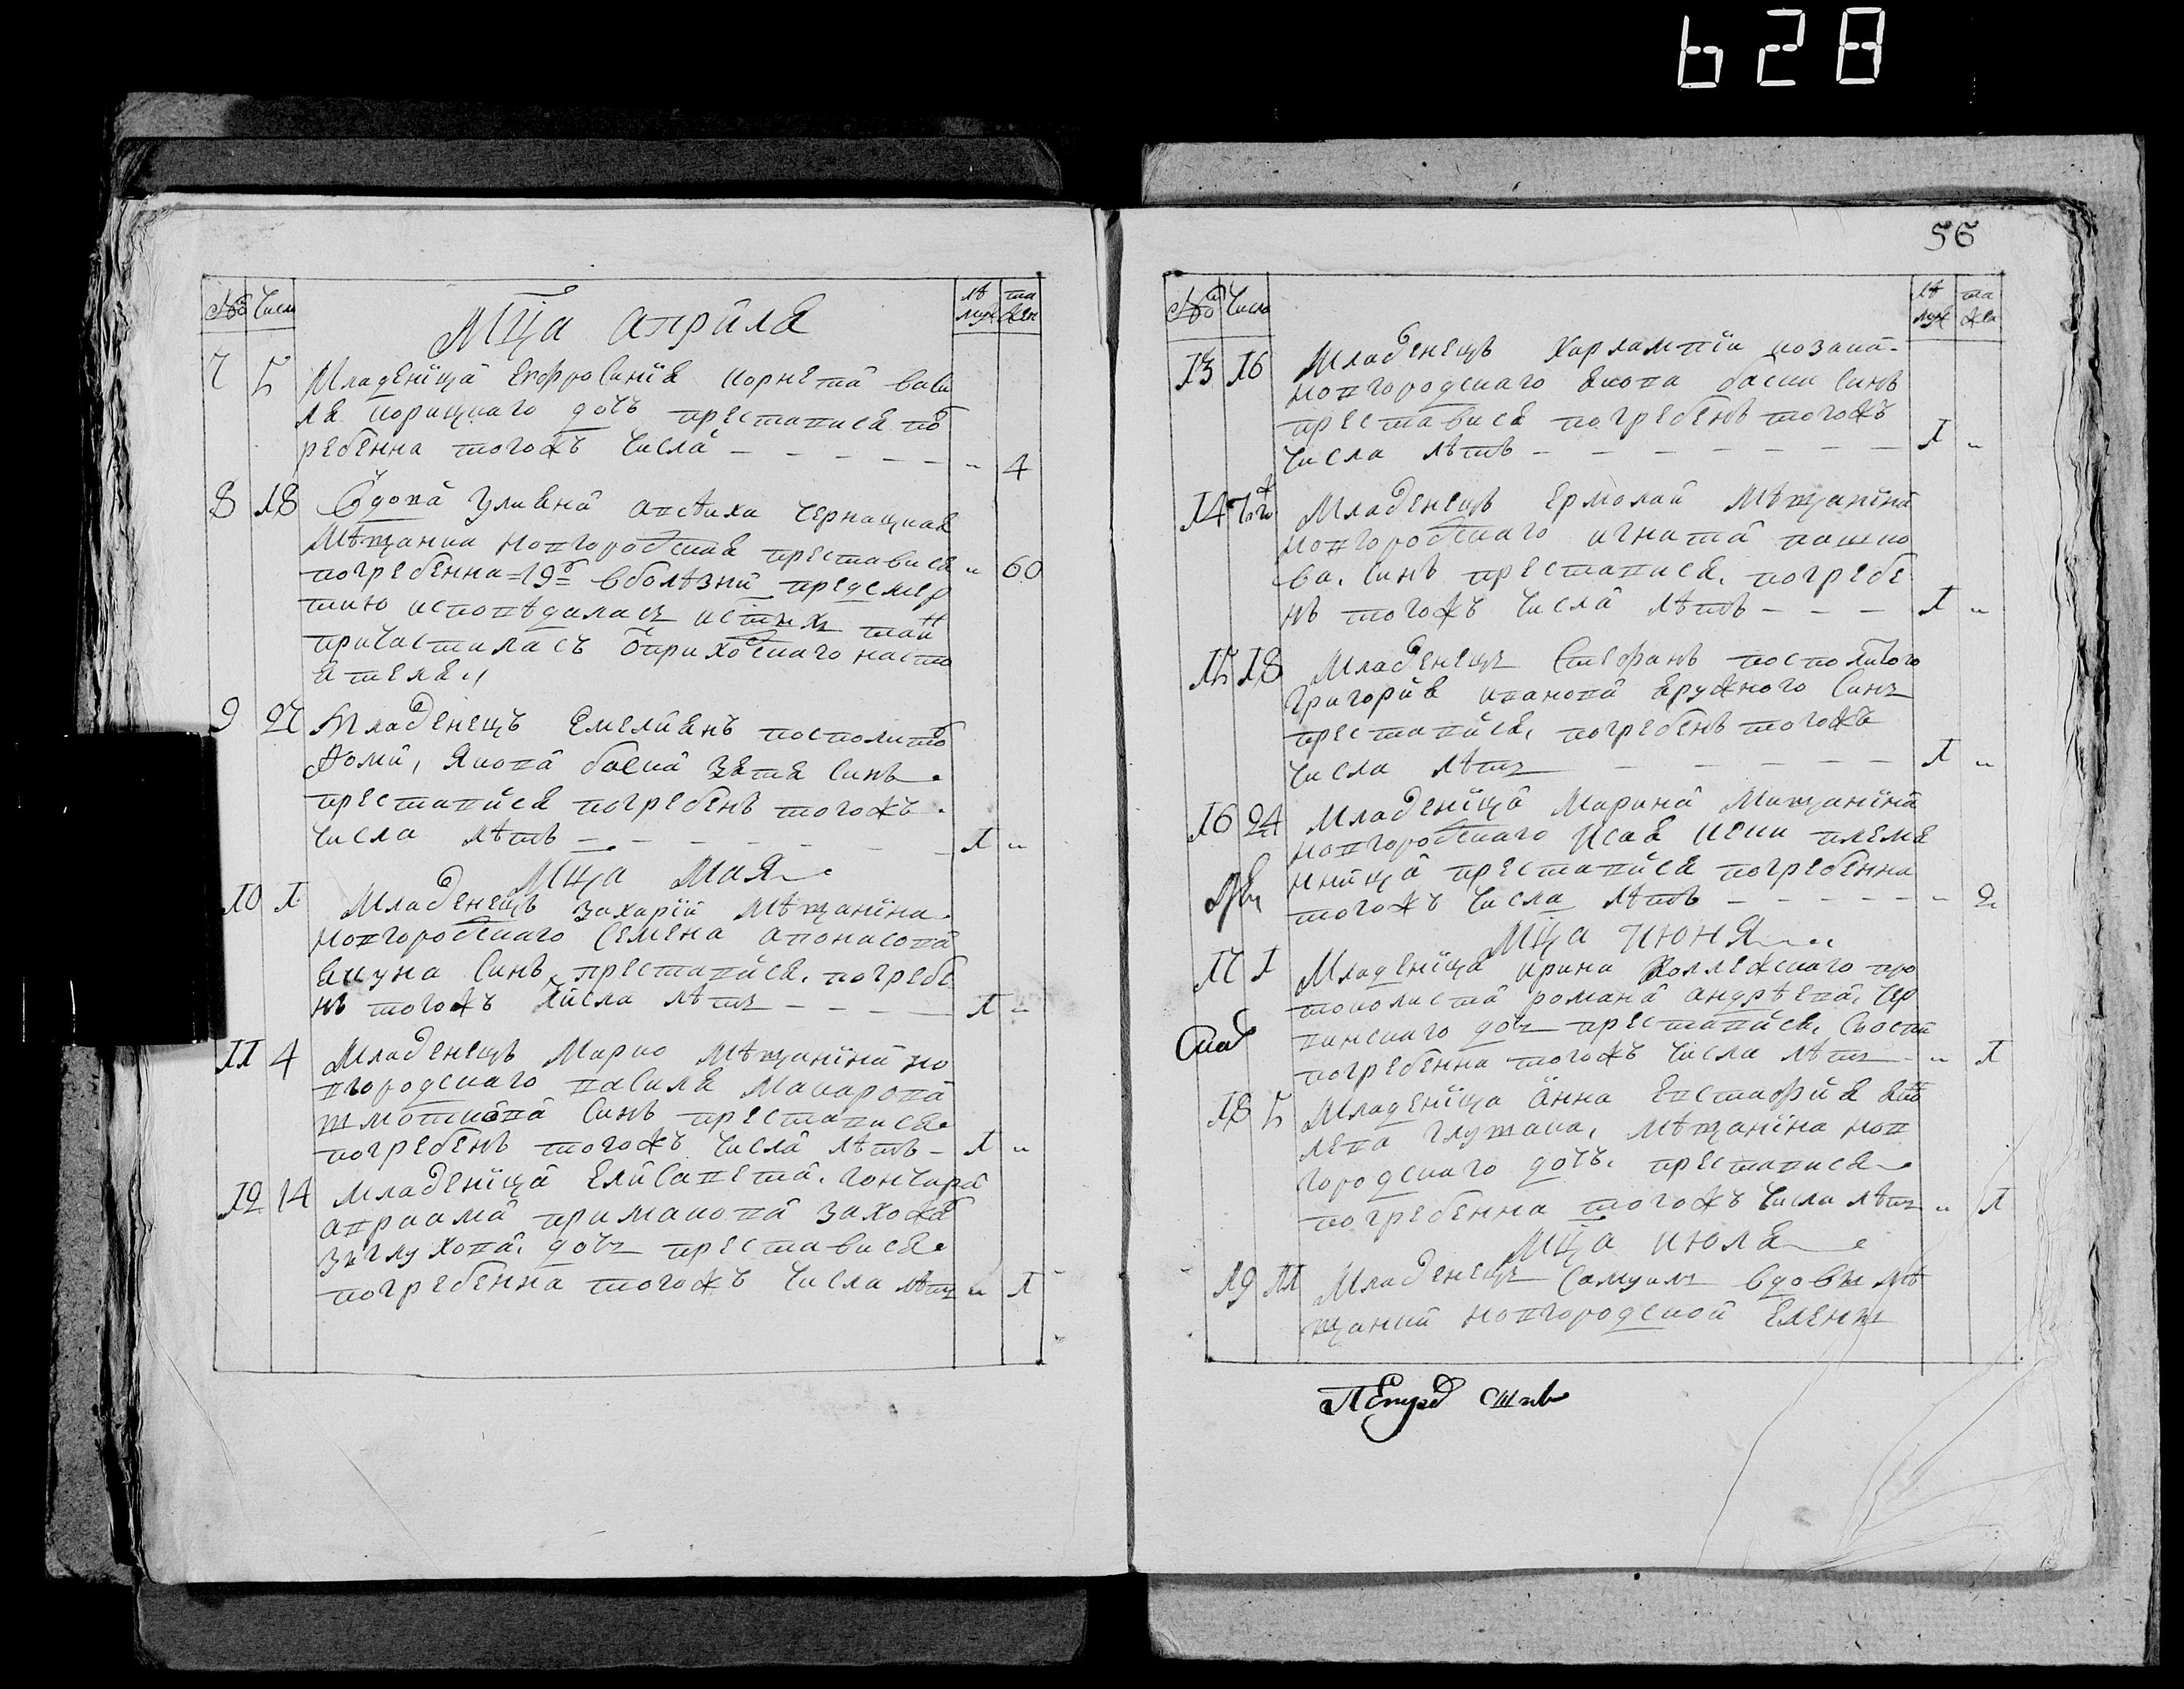 628
56
№ Число лѣ та
муж жен
Мца априля
7 5 Младенїца Еѵфросинїя корнета васи
ля корицкого дочъ преставися по
ребенна тогожъ числа 4
8 18 Вдова Улияна
Мѣщанка новгородская преставися
погребенна 19 вболѣзни предсмер
тию исповѣдалась истых таи 60
причастилась ѿ приходского насто
ятеля
9 27 Младенецъ Емелиянъ посполито
Фоми, Якова баска зятя синъ
преставися погребенъ тогожъ
числа лѣтъ 1
Мца Мая
10 1 Младенецъ Захарїй Мѣщанїна
новгородского Семена Апонасова
синъ преставися, погребе
нъ тогожъ числа лѣтъ 1
11 4 Младенецъ Марко Мѣщанїна но
вгородского василя Макарова
синъ преставися
погребенъ тогожъ числа лѣтъ 1
12 14 Младенїца Елисавета, гончара
авраама примакова захожа
зъглухова, дочъ преставися
погребенна тогожъ числа лѣтъ 1
№ Число лѣ та
муж жен
13 16 Младенецъ Харлампїи козака
новгородского якова баски синъ
преставися погребенъ тогожъ
числа лѣтъ 1
14 Тогож Младенецъ Ермолай Мѣщанїна
новгородского игната пашко
ва, синъ преставися, погребе
нъ тогожъ числа лѣтъ 1
15 18 Младенецъ Стефанъ посполитого
Григорїя иванова синъ
преставися, погребенъ тогожъ
числа лѣтъ 1
16 24 Младенїца Марина Мищанїна
новгородского Исая племя
нница преставися погребенна
тогожъ числа лѣтъ 2
Мца июня
17 1 Младенїца ирина Коллежского про
токолиста романа андрѣева, чер
винского дочъ преставися,
погребенна тогожъ числа лѣтъ 1
18 5 Младенїца Анна Евстафия яко
лева глущака, мѣщанїна нов
городского дочъ, преставися
погребенна тогожъ числа лѣтъ 1
Мца июля
19 11 Младенецъ Самуилъ вдовы мѣ
щанки новгородской Елены